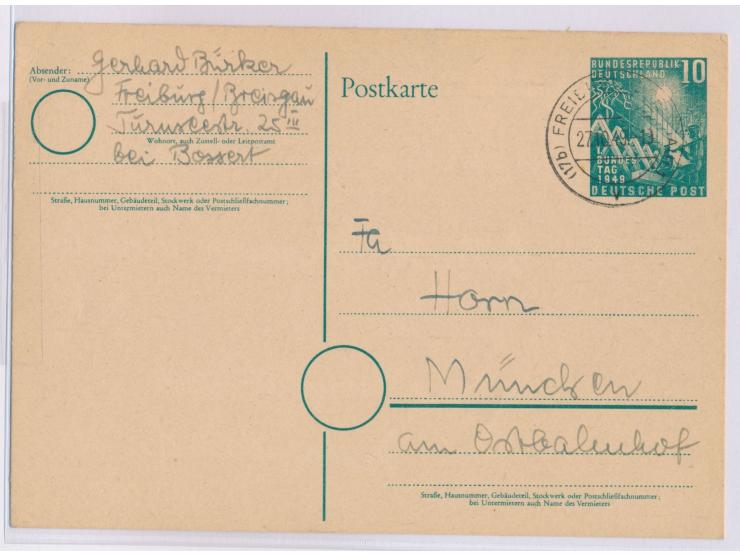 Absender: Gerhard Bürker
(Vor- und Zuname)
Freiburg/Breisgau
Turnseestr. 25 III
Wohnort, auch Zustell- oder Leitpostamt
bei Bossert
Straße, Hausnummer, Gebäudeteil, Stockwerk oder Postschließfachnummer;
bei Untermietern auch Name des Vermieters
Postkarte
BUNDESREPUBLIK 10
DEUTSCHLAND
1.
BUNDES
TAG
1949
DEUTSCHE POST
(17b) FREIB
Fa
Horn
München
am Ostbahnhof
Straße, Hausnummer, Gebäudeteil, Stockwerk oder Postschließfachnummer;
bei Untermietern auch Name des Vermieters